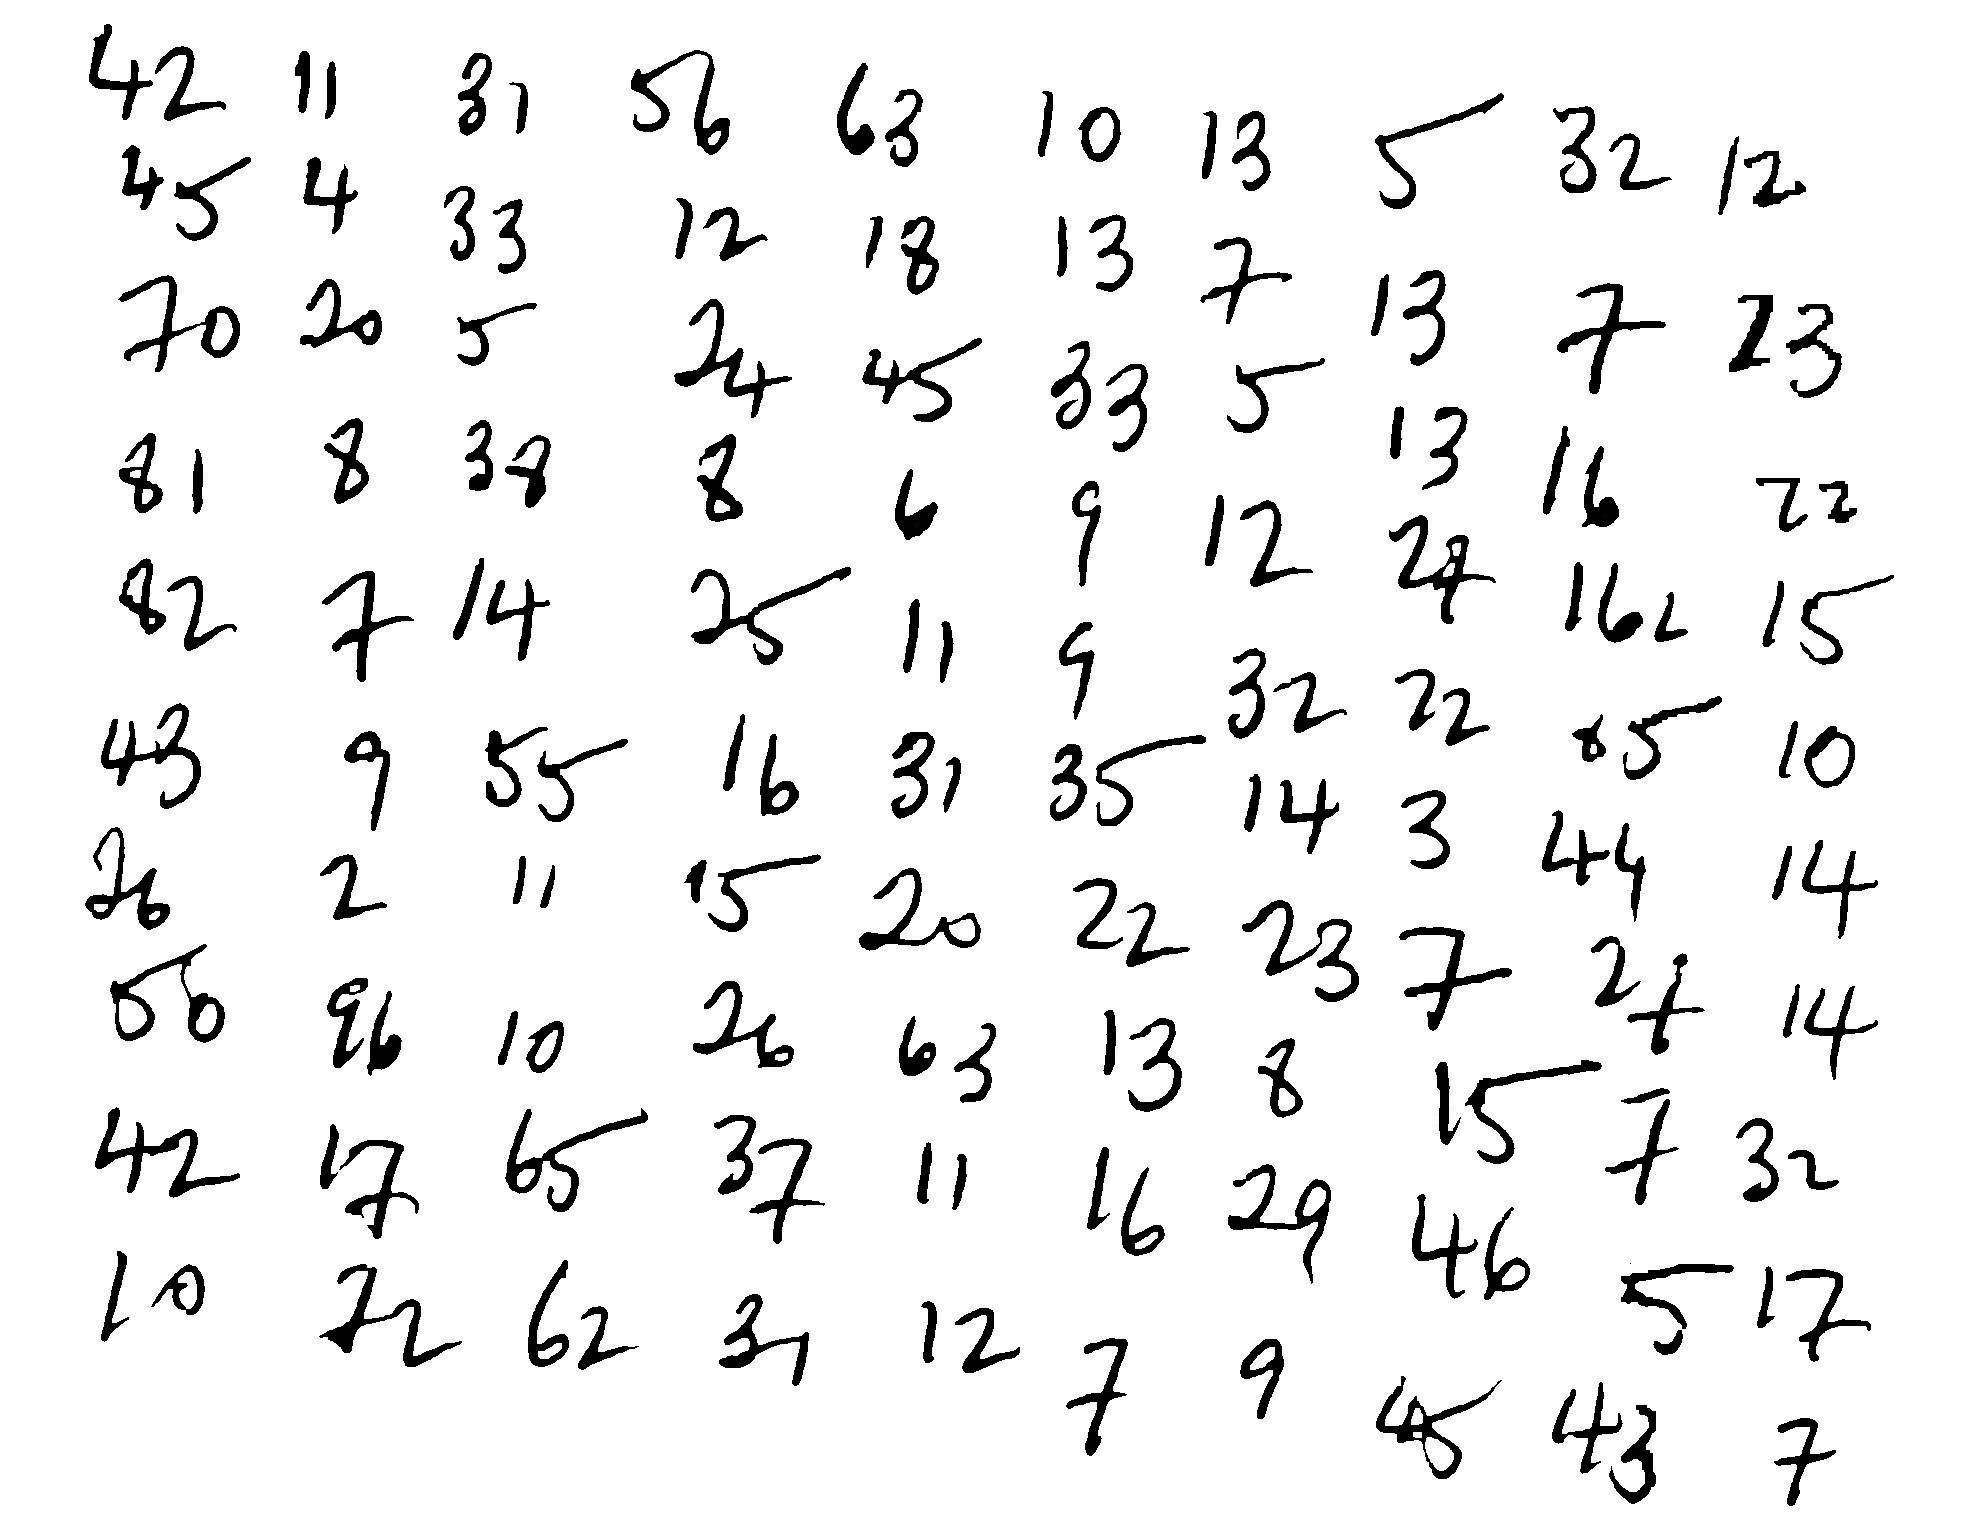 42 11 31 56 63 10 13 5 32 12
45 4 33 12 18 13 7 13 7 23
70 20 5 24 45 33 5 13 16 22
81 8 38 8 6 9 12 24 162 15
82 7 14 25 11 9 32 22 85 10
43 9 55 16 31 35 14 3 44 14
26 2 11 15 20 22 23 7 27 14
56 96 10 26 63 13 8 15 7 32
42 17 65 37 11 16 29 46 5 17
10 22 62 31 12 7 9 45 43 7